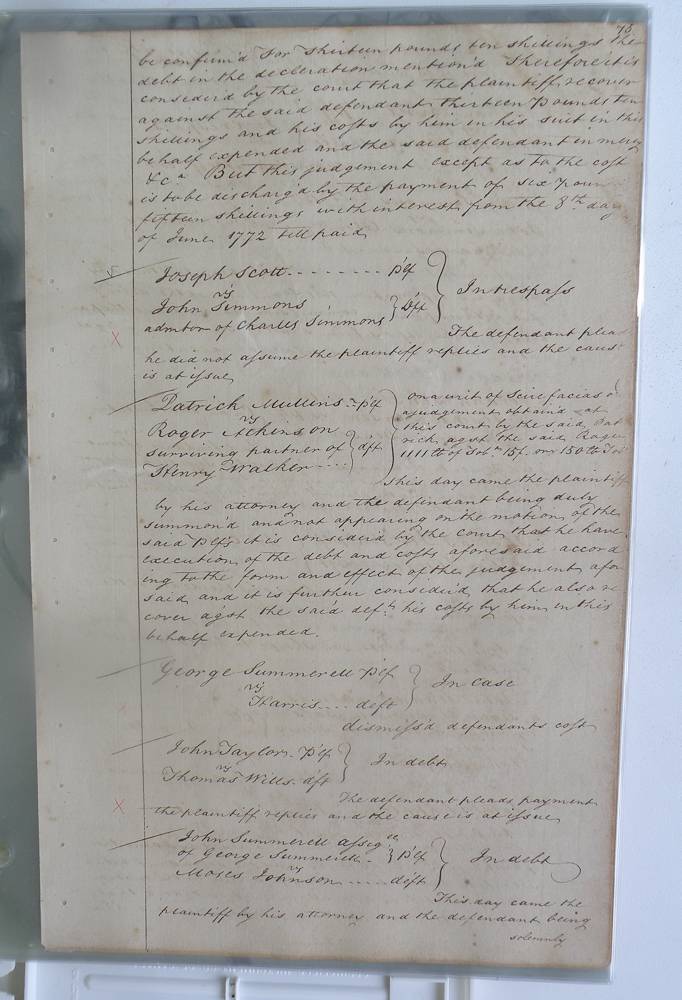 78
be confirm'd for thirteen pounds ten shillings the
debt in the declaration mention'd Therefore it is
consider'd by the court that the plaintiff recover
against the said defendant thirteen Pounds ten
shillings and his costs by him in his suit in this
behalf expended and the said defendant in mercy
&c.a But this judgement except as to the cost
is to be discharg'd by the payment of six poun
fifteen shillings with interest from the 8th day
of June 1772 till paid
Joseph Scott - - - - - - - - p'lf
vs
John Simmons
admtor of Charles Simmons } Dft
} In trespass
The defendant plea
he did not assume the plaintiff replies and the caus
is at issue
Patrick Mullins - - p'lf
vs
Roger Atkinson
surviving partner of } dft
Henry Walker - - - -
on a writ of Scire facias o
a judgement obtain'd at
this court by the said Pat
rick agst the said Roger
1111 lb of Tobo 15/. or 150 lb Tobo
This day came the plaintiff
by his attorney and the defendant being duly
summon'd and not appearing on the motion of the
said Plfs it is consider'd by the court that he have
execution of the debt and costs aforesaid accord
ing to the form and effect of the judgement afore
said and it is further consider'd that he also re
cover agst the said deft his costs by him in this
behalf expended.
George Summerell p'lf
vs
Harris - - - - deft
} In case
dismiss'd defendants cost
John Taylor - p'lf
vs
Thomas Wills - dft
} In debt
The defendant pleads payment
the plaintiff replies and the cause is at issue
John Summerell assignee
of George Summerell - } p'lf
vs
Moses Johnson - - - - - deft
} In debt
This day came the
plaintiff by his attorney and the defendant being
solemnly